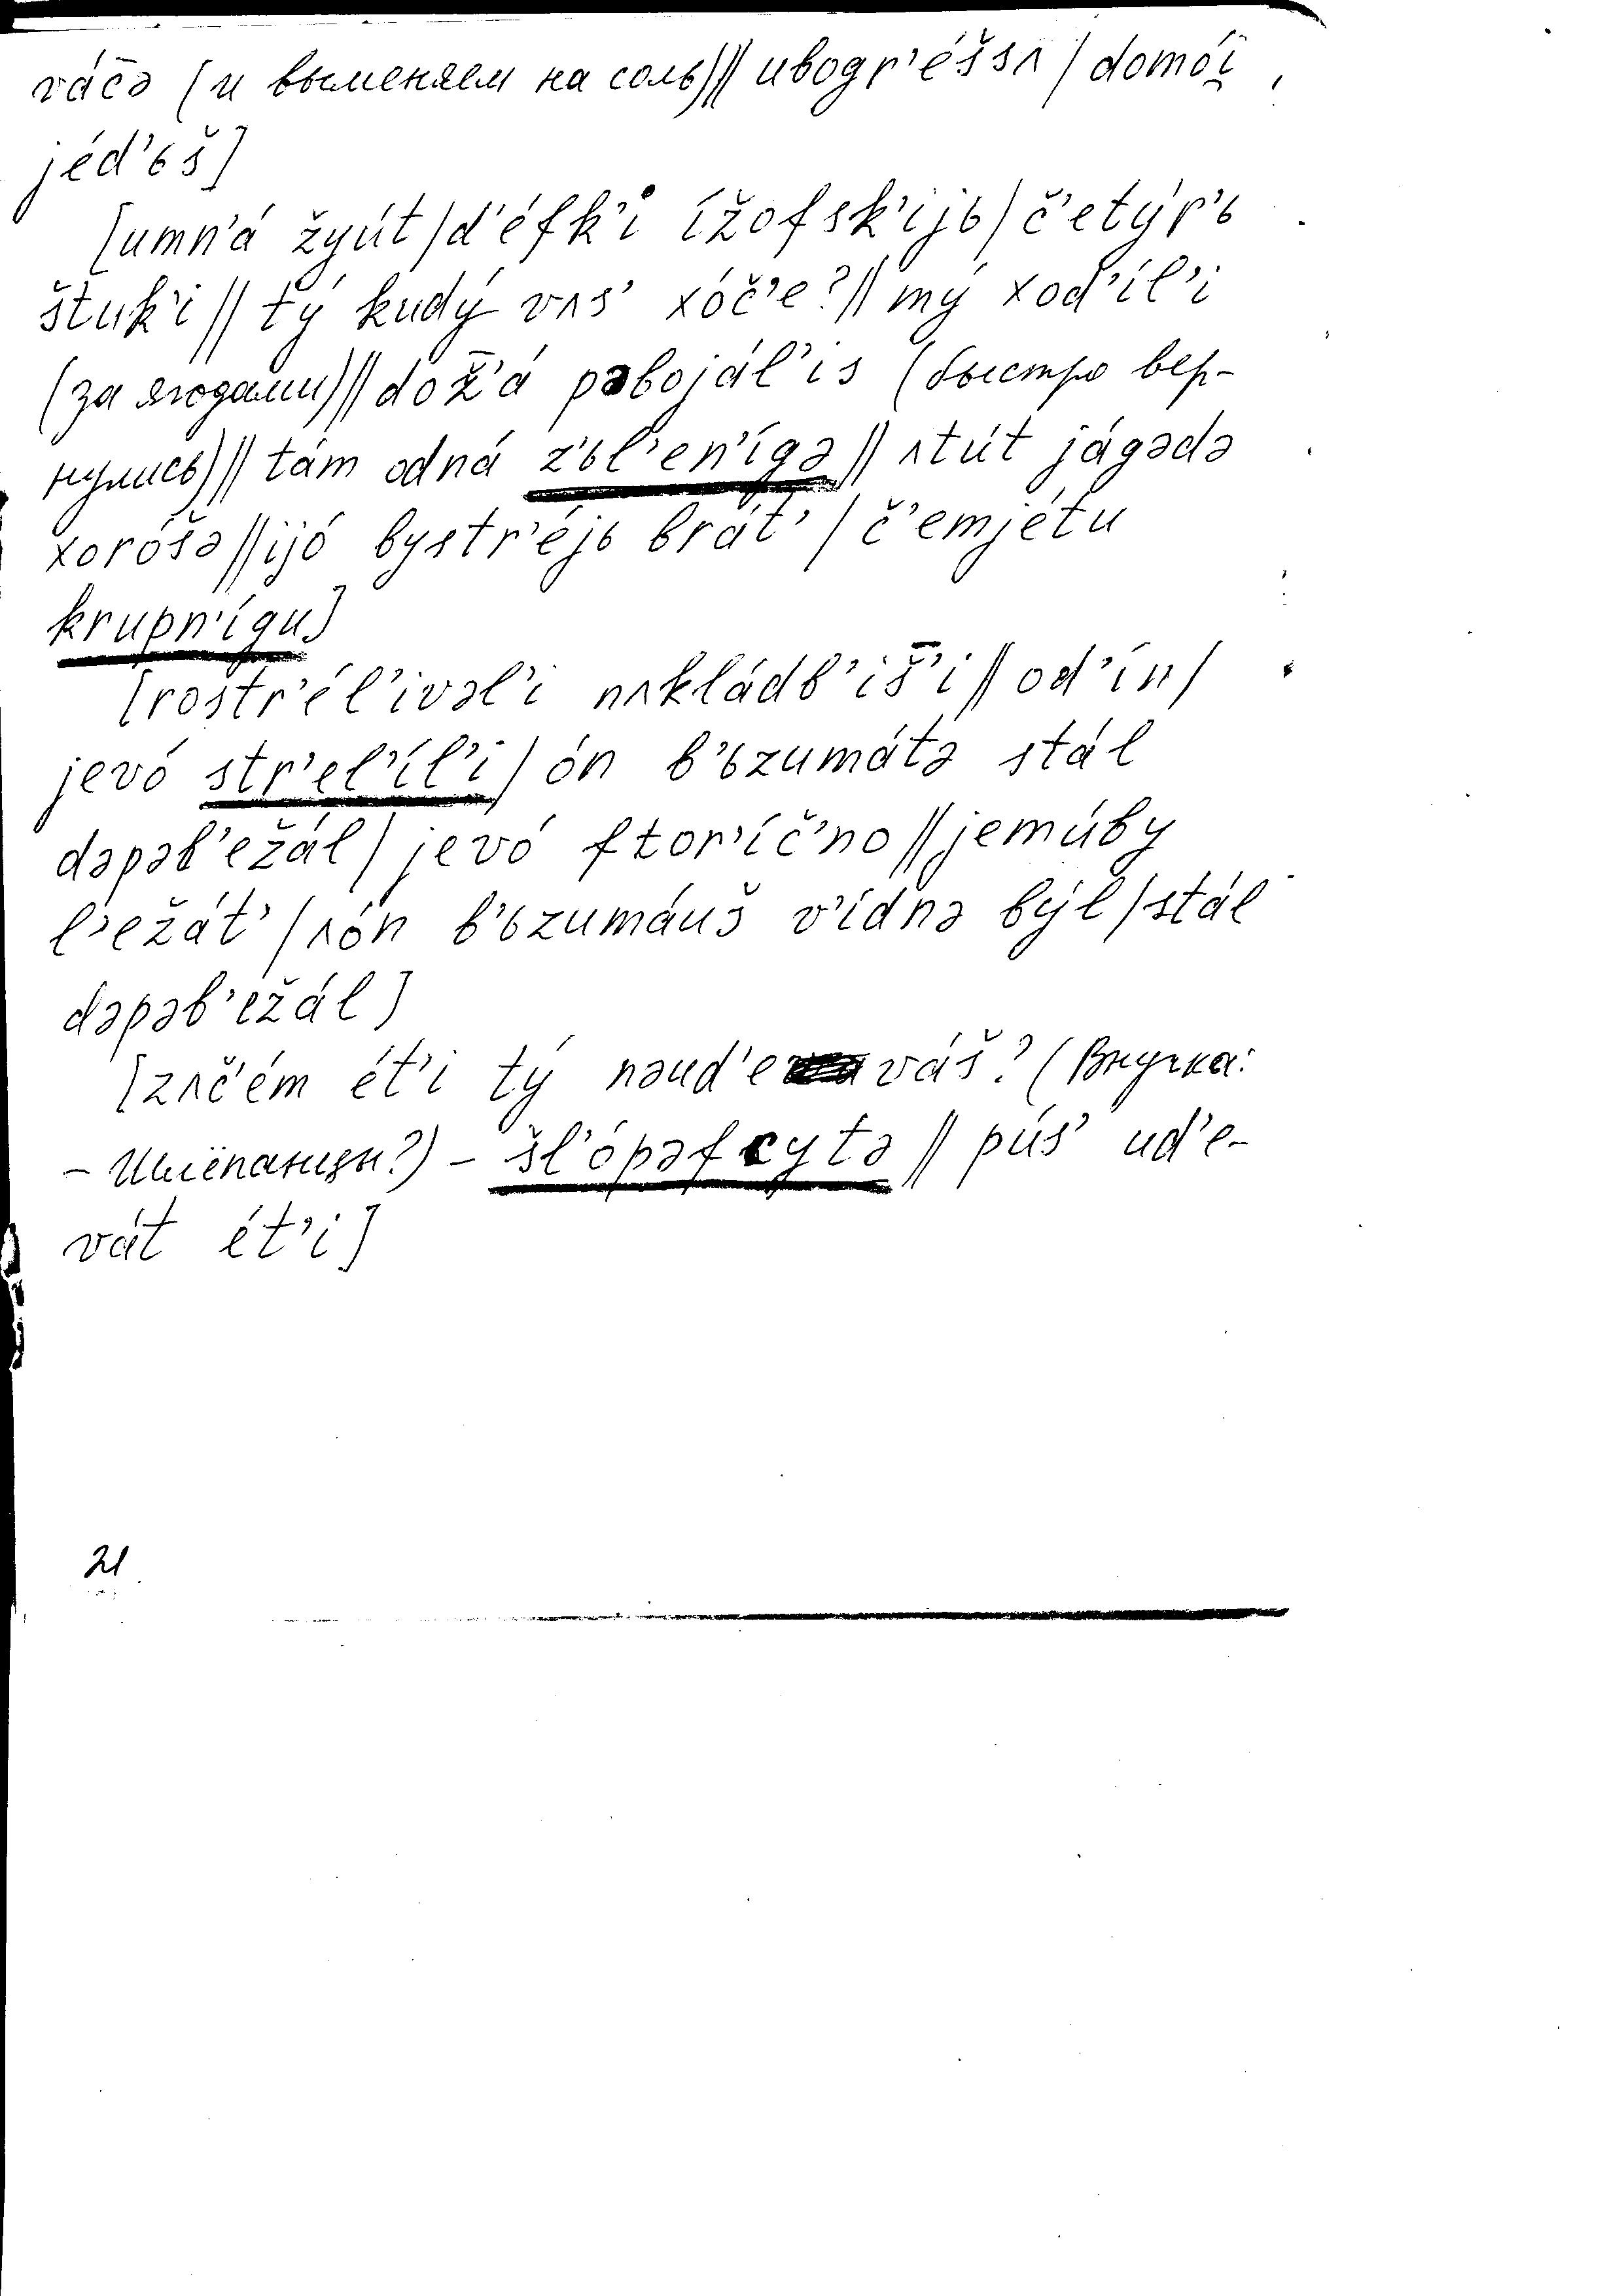 vác̄ə (и выменяем на соль)‖ ubogr’éšsʌ / domói̯
jéd’ьš]
[umn’á žyút / d’éfk’i ížofsk’ijь / č’etýr’ь
štuk’i ‖ tý kudý vʌs’ xóč’e? ‖ mý xod’íl’i
(за ягодами) ‖ dož̄’á pəbojál’is (быстро вер-
нулись) ‖ tám odná z’ьl’en’ígə ‖ ʌtút jágədə
xoróšə ‖ ijó bystr’éjь brát’ / č’emjétu
krupn’ígu]
[rostr’él’ivəl’i nʌkládb’iš̄’i ‖ od’ín /
jevó str’el’íl’i / ón b’ьzumátə stál
dəpəb’ežál / jevó ftor’íč’no ‖ jemúby
l’ežát’ / ʌón b’ьzumáuš v’ídnə býl / stál
dəpəb’ežál]
[zʌč’ém ét’i tý nəud’eváš? (Внучка:
– Шлёпанцы?) – šl’ópəfcytə ‖ pús’ ud’e-
vát ét’i]
21